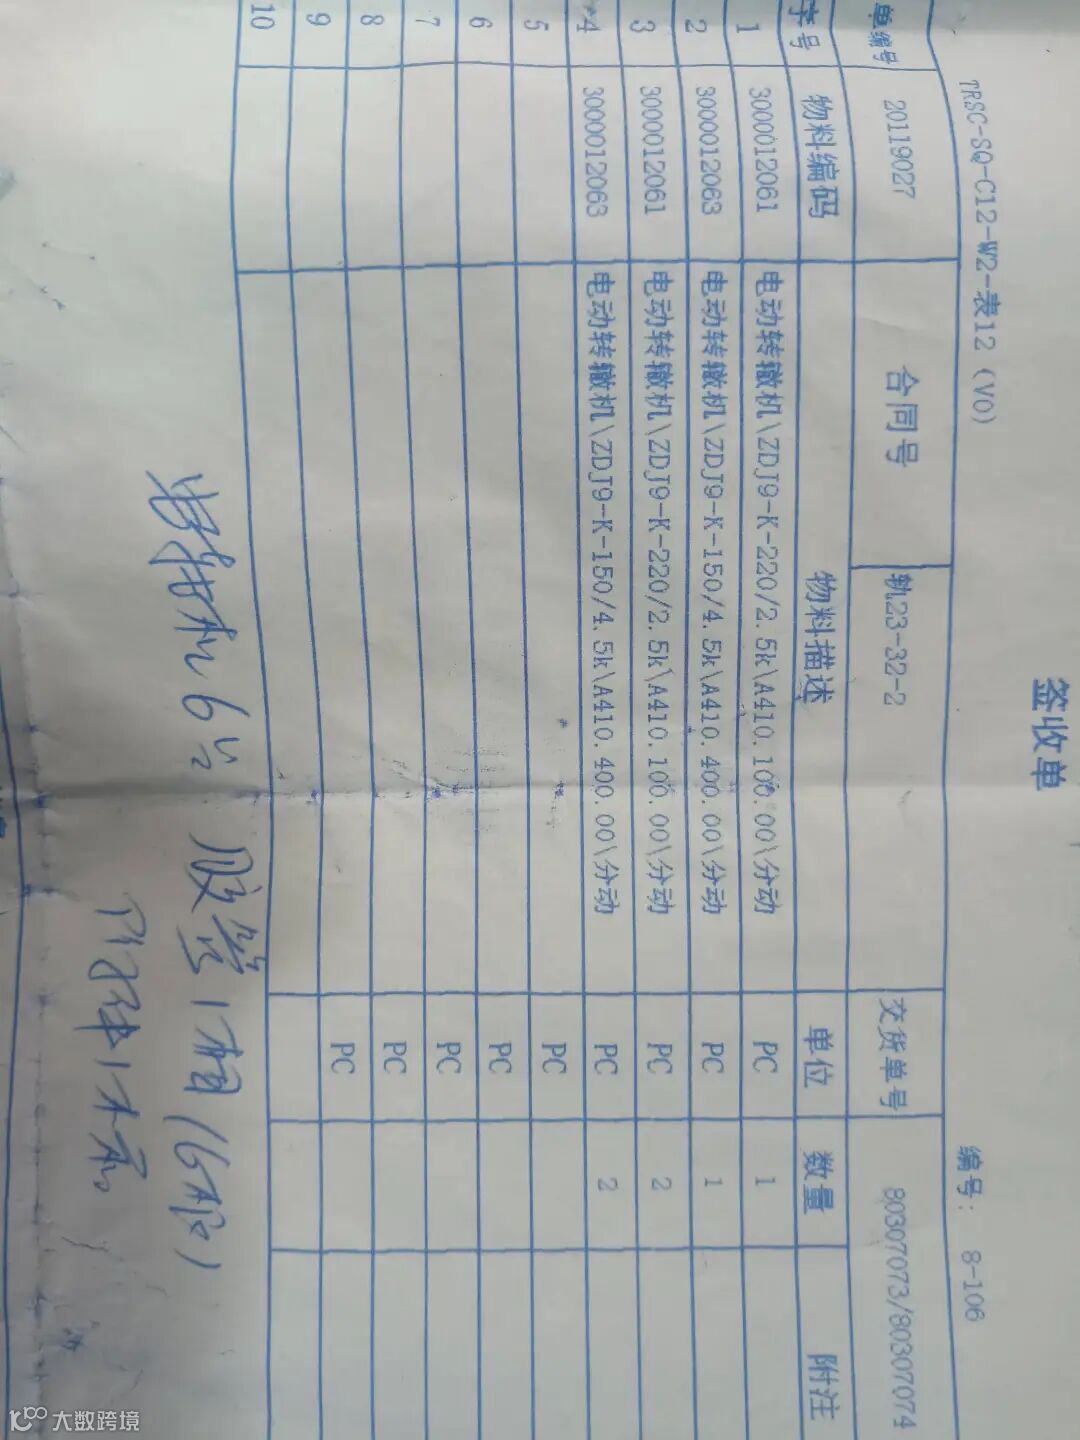 签收单
TRSC-SQ-C12-W2-表12（V0） 编号： 8-106
单编号 20119027 合同号 轨23-32-2 交货单号 80307073/80307074
序号 物料编码 物料描述 单位 数量 附注
1 3000012061 电动转辙机\ZDJ9-K-220/2.5k\A410.100.00\分动 PC 1
2 3000012063 电动转辙机\ZDJ9-K-150/4.5k\A410.400.00\分动 PC 1
3 3000012061 电动转辙机\ZDJ9-K-220/2.5k\A410.100.00\分动 PC 2
4 3000012063 电动转辙机\ZDJ9-K-150/4.5k\A410.400.00\分动 PC 2
5 PC
6 PC
7 PC
8 PC
9 PC
10
转辙机6台 胶管1箱(6根)
1体
大数跨境